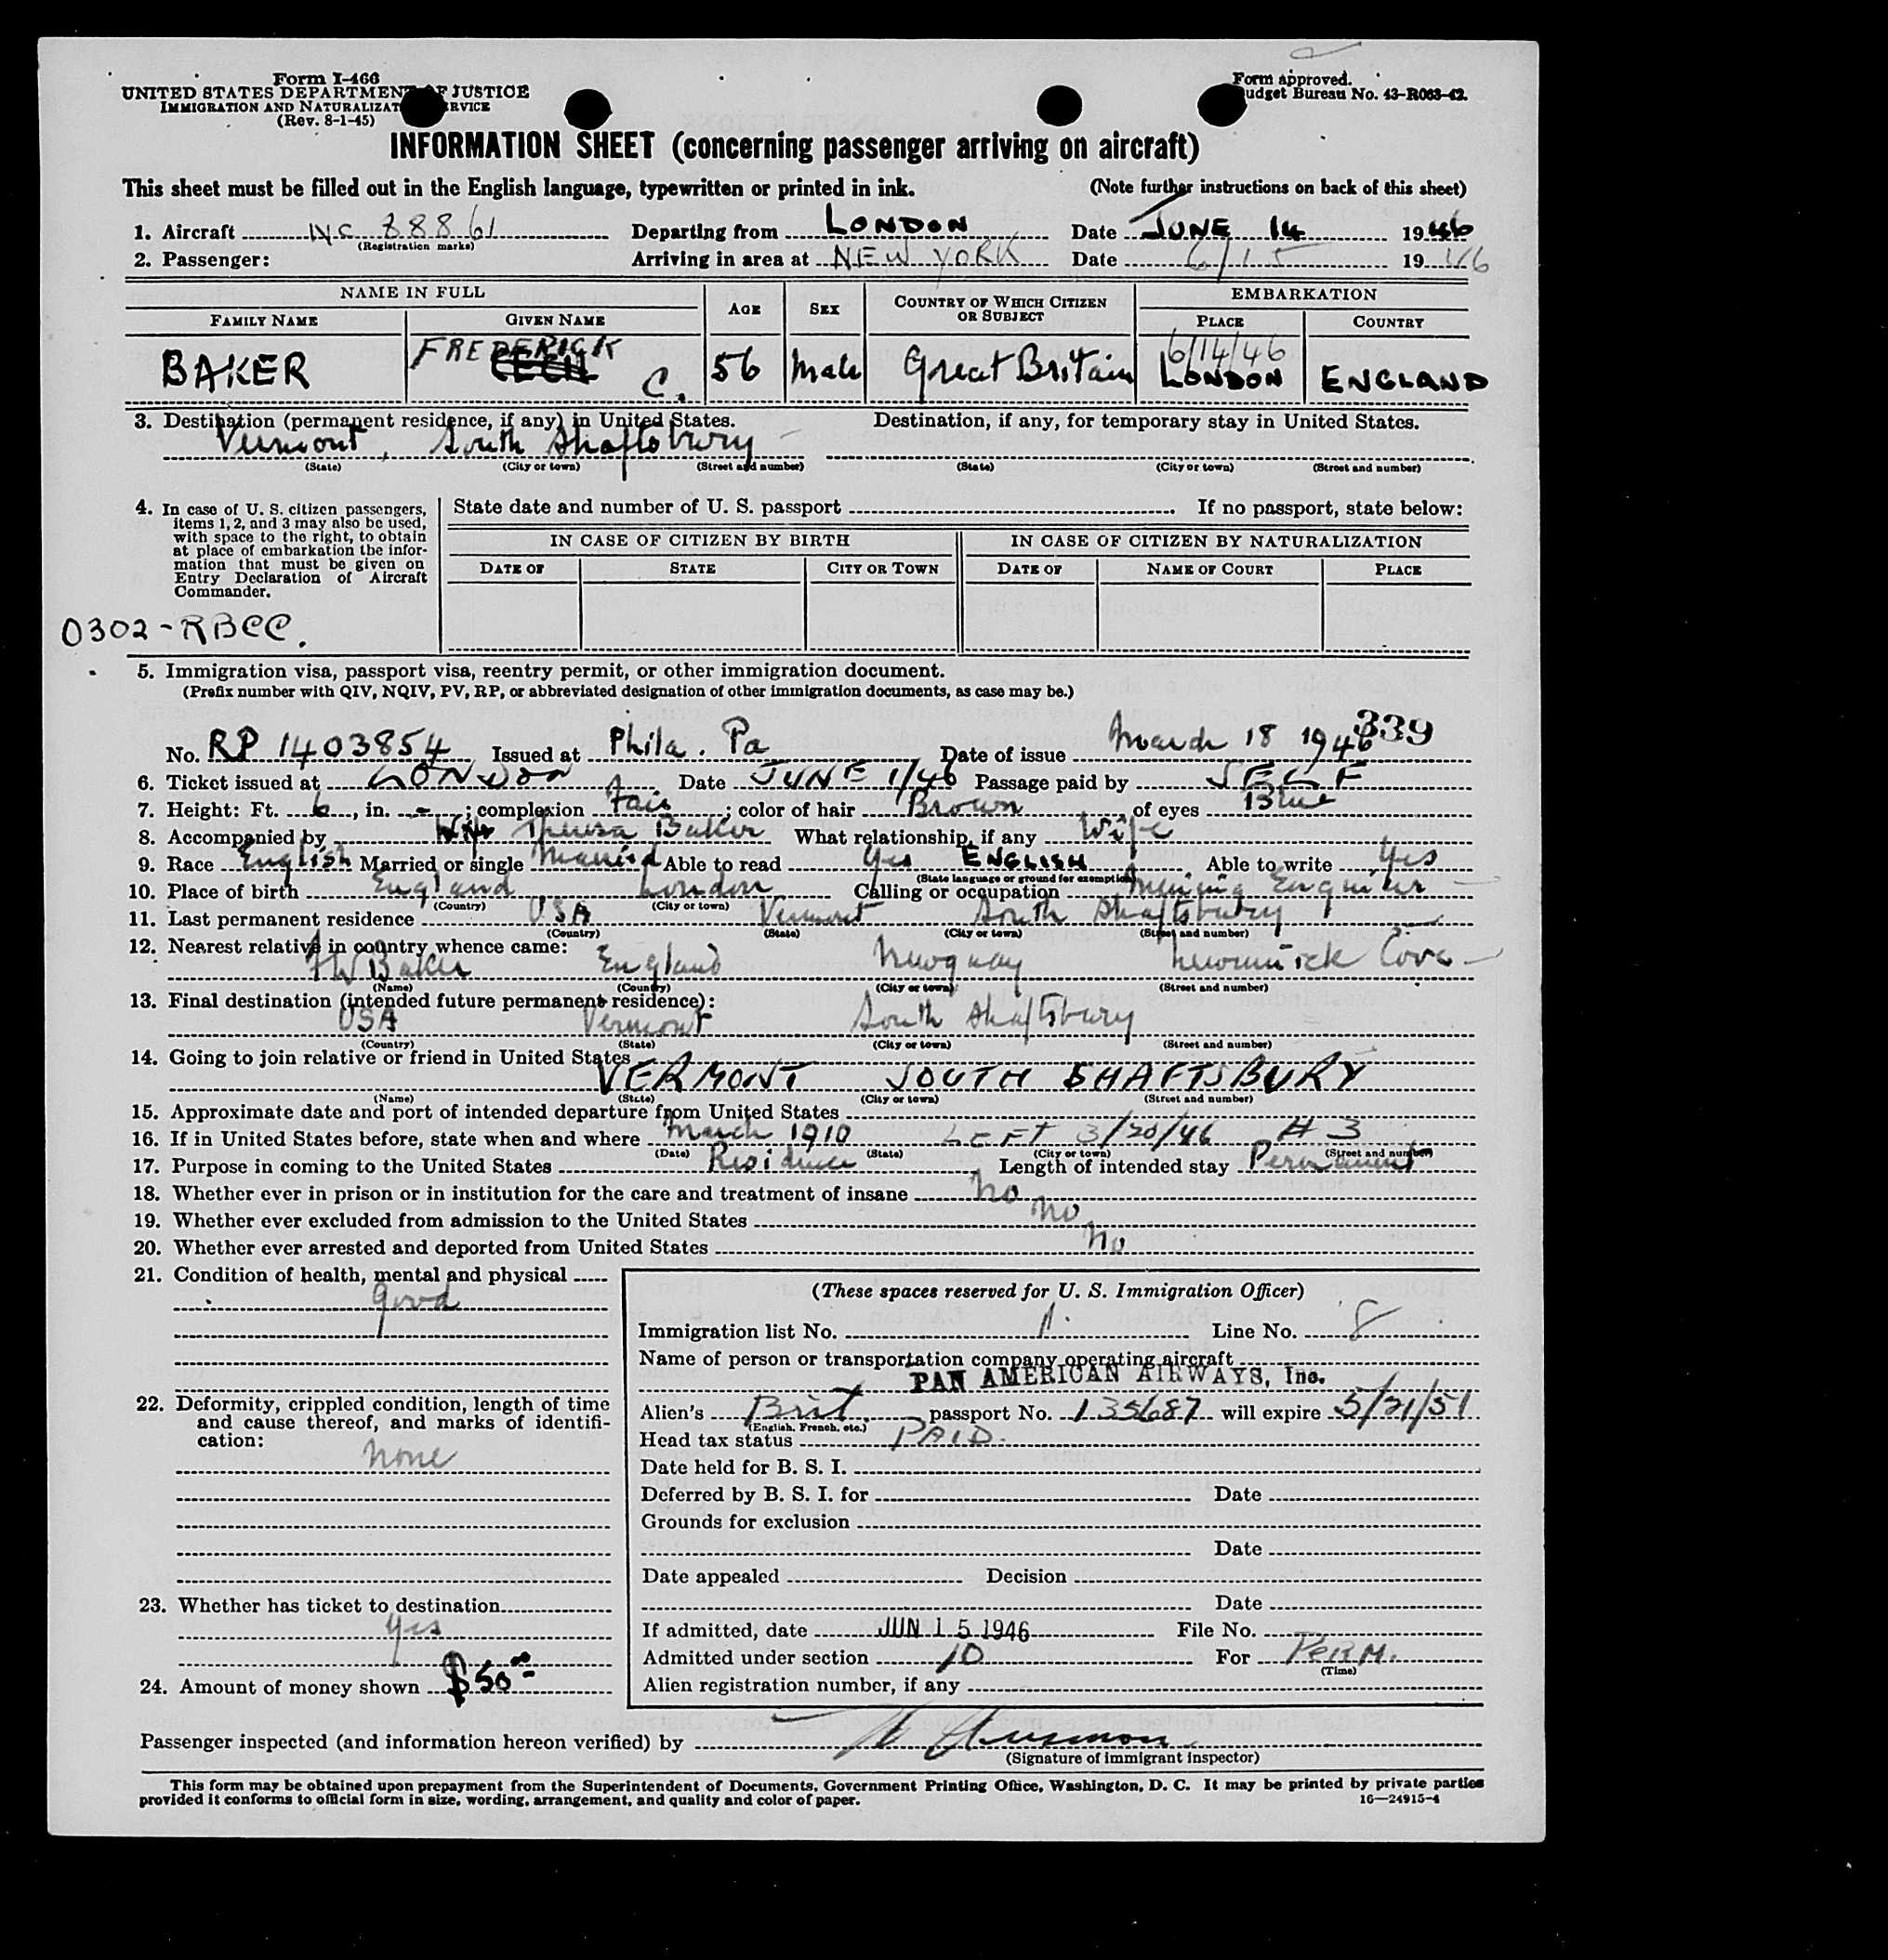 Form I-466
UNITED STATES DEPARTMENT OF JUSTICE
IMMIGRATION AND NATURALIZAT RVICE
(Rev. 8-1-45)
Form approved.
udget Bureau No. 43-R063-42.
INFORMATION SHEET (concerning passenger arriving on aircraft)
This sheet must be filled out in the English language, typewritten or printed in ink. (Note further instructions on back of this sheet)
1. Aircraft NC 88861 Departing from LONDON Date JUNE 14 1946
(Registration marks)
2. Passenger: Arriving in area at NEW YORK Date 6/15 1946
NAME IN FULL AGE SEX COUNTRY OF WHICH CITIZEN OR SUBJECT EMBARKATION
FAMILY NAME GIVEN NAME PLACE COUNTRY
FREDERICK 6/14/46
BAKER CECIL C. 56 Male Great Britain LONDON ENGLAND
3. Destination (permanent residence, if any) in United States. Destination, if any, for temporary stay in United States.
Vermont, South Shaftsbury
(State) (City or town) (Street and number) (State) (City or town) (Street and number)
4. In case of U. S. citizen passengers, items 1, 2, and 3 may also be used, with space to the right, to obtain at place of embarkation the information that must be given on Entry Declaration of Aircraft Commander.
State date and number of U. S. passport . If no passport, state below:
IN CASE OF CITIZEN BY BIRTH IN CASE OF CITIZEN BY NATURALIZATION
DATE OF STATE CITY OR TOWN DATE OF NAME OF COURT PLACE
0302-RBCC.
5. Immigration visa, passport visa, reentry permit, or other immigration document.
(Prefix number with QIV, NQIV, PV, RP, or abbreviated designation of other immigration documents, as case may be.)
339
No. RP 1403854 Issued at Phila. Pa Date of issue March 18 1946
6. Ticket issued at LONDON Date JUNE 1/46 Passage paid by SELF
7. Height: Ft. 6, in. -; complexion Fair; color of hair Brown of eyes Blue
8. Accompanied by Wife Theresa Baker What relationship, if any Wife
9. Race English Married or single Married Able to read Yes ENGLISH Able to write Yes
(State language or ground for exemption)
10. Place of birth England London Calling or occupation Mining Engineer
(Country) (City or town)
11. Last permanent residence USA Vermont South Shaftsbury
(Country) (State) (City or town) (Street and number)
12. Nearest relative in country whence came:
Baker England Newquay Cove
(Name) (Country) (City or town) (Street and number)
13. Final destination (intended future permanent residence):
USA Vermont South Shaftsbury
(Country) (State) (City or town) (Street and number)
14. Going to join relative or friend in United States
VERMONT SOUTH SHAFTSBURY
(Name) (State) (City or town) (Street and number)
15. Approximate date and port of intended departure from United States
16. If in United States before, state when and where March 1910 LEFT 3/20/46 # 3
(Date) (State) (City or town) (Street and number)
17. Purpose in coming to the United States Residence Length of intended stay Permanent
18. Whether ever in prison or in institution for the care and treatment of insane No
19. Whether ever excluded from admission to the United States No
20. Whether ever arrested and deported from United States No
21. Condition of health, mental and physical
good
22. Deformity, crippled condition, length of time and cause thereof, and marks of identification:
None
23. Whether has ticket to destination
Yes
24. Amount of money shown $50 00
(These spaces reserved for U. S. Immigration Officer)
Immigration list No. 1. Line No. 8
Name of person or transportation company operating aircraft
PAN AMERICAN AIRWAYS, Inc.
Alien's Brit. passport No. 135687 will expire 5/21/51
(English, French, etc.)
Head tax status PAID.
Date held for B. S. I.
Deferred by B. S. I. for Date
Grounds for exclusion
Date
Date appealed Decision
Date
If admitted, date JUN 15 1946 File No.
Admitted under section 10 For PERM.
(Time)
Alien registration number, if any
Passenger inspected (and information hereon verified) by
(Signature of immigrant inspector)
This form may be obtained upon prepayment from the Superintendent of Documents, Government Printing Office, Washington, D. C. It may be printed by private parties
provided it conforms to official form in size, wording, arrangement, and quality and color of paper. 16—24915-4